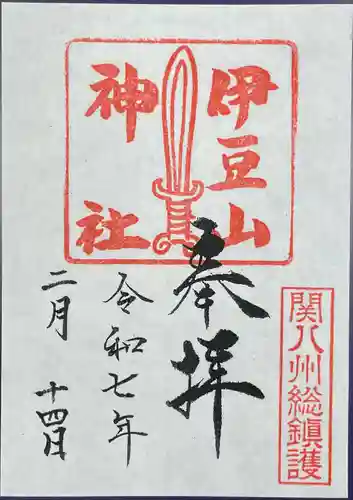 伊豆山
神社
奉拝
関八州総鎮護
令和七年
二月
十四日